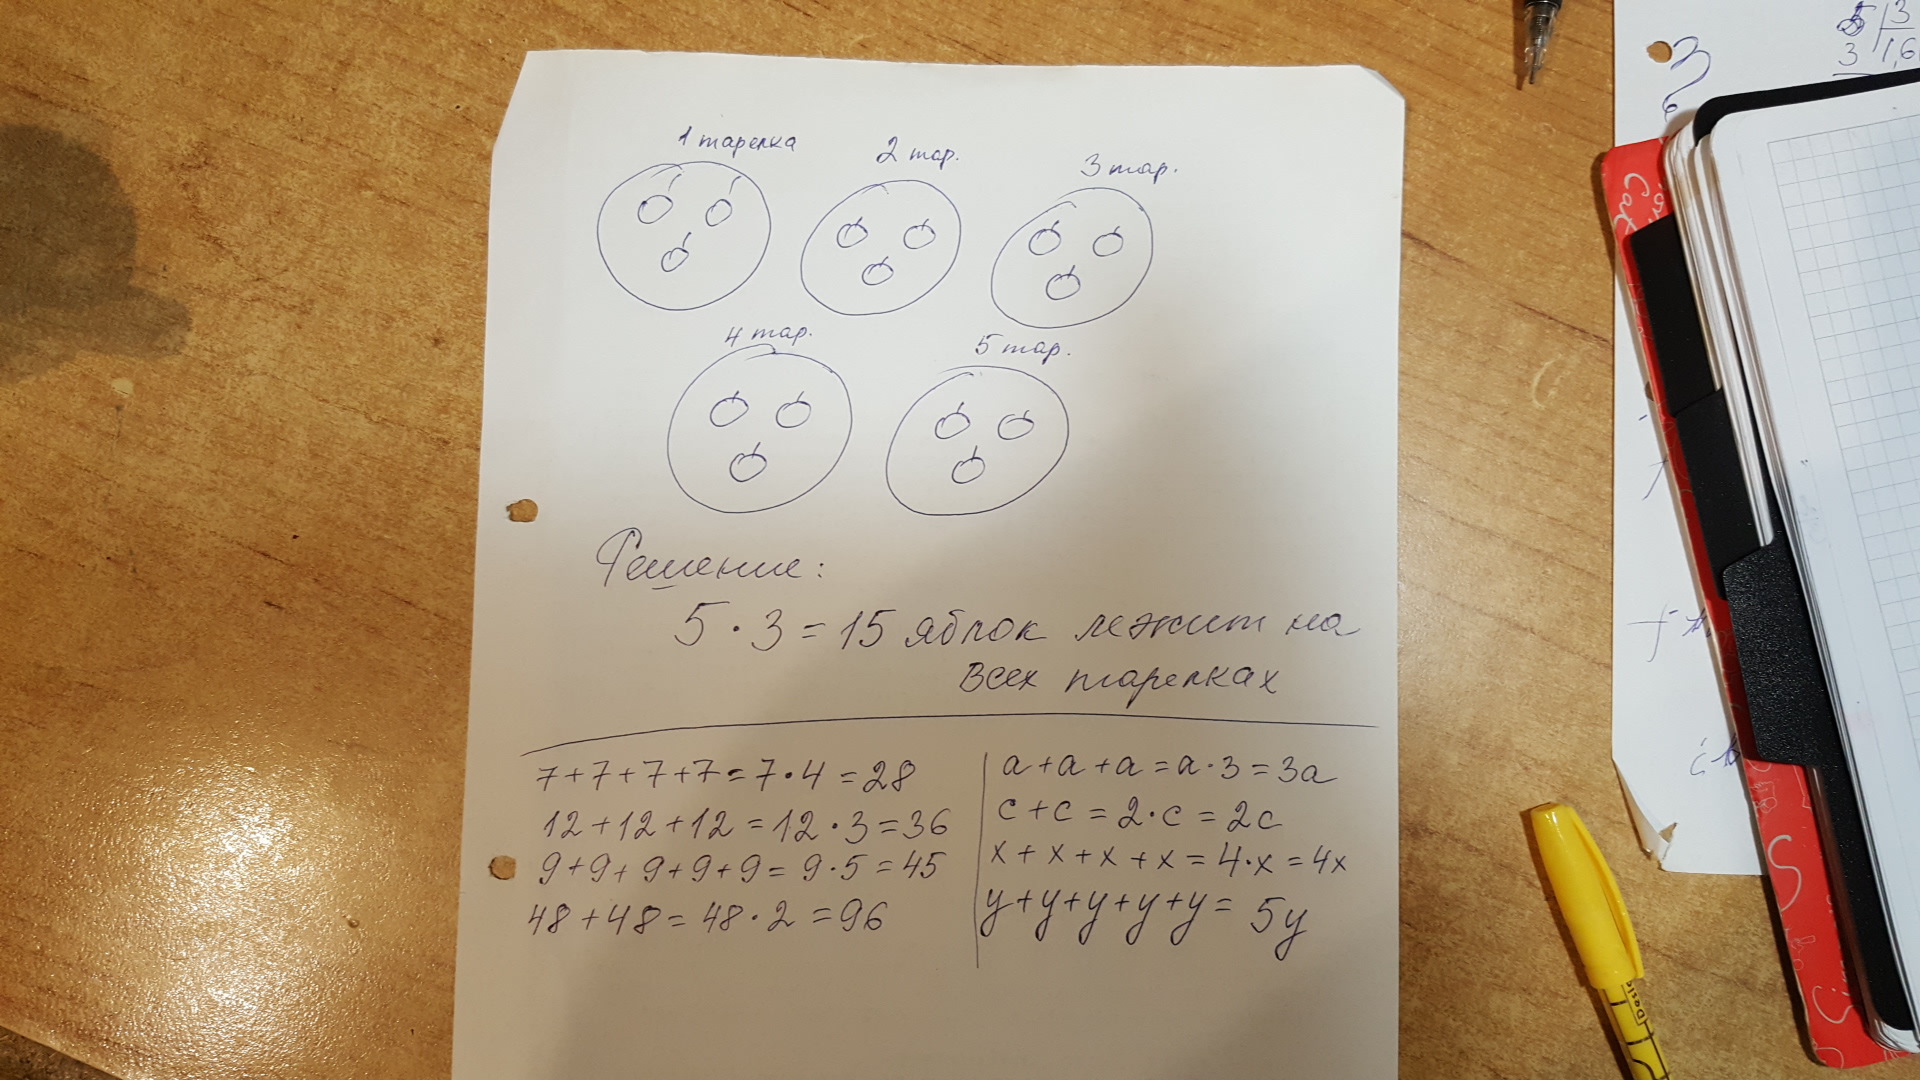 1 тарелка
2 тар.
3 тар.
4 тар.
5 тар.
Решение:
5 · 3 = 15 яблок лежит на
всех тарелках
7+7+7+7=7·4=28
12+12+12=12·3=36
9+9+9+9+9=9·5=45
48+48=48·2=96
a+a+a=a·3=3a
c+c=2·c=2c
x+x+x+x=4·x=4x
y+y+y+y+y=5y
3